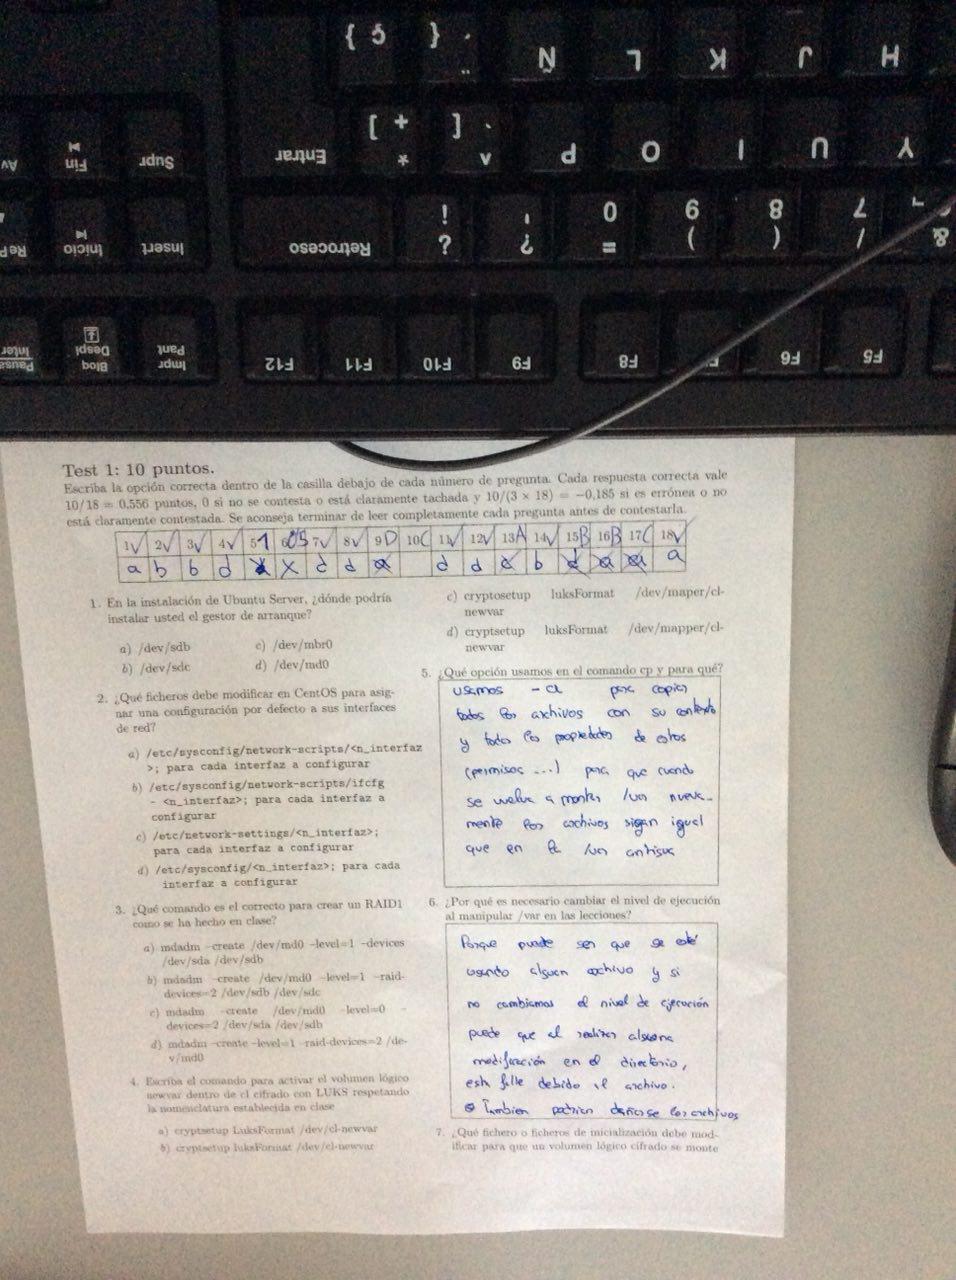 { Ç } ¨ Ñ L K J H
Av Fin Supr Entrar ] + * [ ^ P O I U Y
RePá Inicio Insert Retroceso ! ¿ ' ? 0 = 9 ) 8 ( 7 / & 6 ¬
Pausa Inter Bloq Despl Impr Pant F12 F11 F10 F9 F8 F6 F5
Test 1: 10 puntos.
Escriba la opción correcta dentro de la casilla debajo de cada número de pregunta. Cada respuesta correcta vale
10/18 = 0,556 puntos, 0 si no se contesta o está claramente tachada y 10/(3 × 18) = −0,185 si es errónea o no
está claramente contestada. Se aconseja terminar de leer completamente cada pregunta antes de contestarla.
1 2 3 4 5 1 6 0'5 7 8 9 D 10 C 11 12 13 A 14 15 B 16 B 17 C 18
a b b d x d d a d d b d a a a
1. En la instalación de Ubuntu Server, ¿dónde podría
instalar usted el gestor de arranque?
a) /dev/sdb
b) /dev/sdc
c) /dev/mbr0
d) /dev/md0
2. ¿Qué ficheros debe modificar en CentOS para asig-
nar una configuración por defecto a sus interfaces
de red?
a) /etc/sysconfig/network-scripts/<n_interfaz
>; para cada interfaz a configurar
b) /etc/sysconfig/network-scripts/ifcfg
- <n_interfaz>; para cada interfaz a
configurar
c) /etc/network-settings/<n_interfaz>;
para cada interfaz a configurar
d) /etc/sysconfig/<n_interfaz>; para cada
interfaz a configurar
3. ¿Qué comando es el correcto para crear un RAID1
como se ha hecho en clase?
a) mdadm –create /dev/md0 –level=1 –devices
/dev/sda /dev/sdb
b) mdadm –create /dev/md0 –level=1 –raid-
devices=2 /dev/sdb /dev/sdc
c) mdadm –create /dev/md0 –level=0 -
devices=2 /dev/sda /dev/sdb
d) mdadm –create –level=1 –raid-devices=2 /de-
v/md0
4. Escriba el comando para activar el volumen lógico
newvar dentro de cl cifrado con LUKS respetando
la nomenclatura establecida en clase
a) cryptsetup LuksFormat /dev/cl-newvar
b) cryptsetup luksFormat /dev/cl-newvar
c) cryptosetup luksFormat /dev/maper/cl-
newvar
d) cryptsetup luksFormat /dev/mapper/cl-
newvar
5. ¿Qué opción usamos en el comando cp y para qué?
usamos -a para copiar
todos los archivos con su contexto
y todas las propiedades de estos
(permisos ...) para que cuando
se vuelva a montar /var nueva-
mente los archivos sigan igual
que en la /var antigua
6. ¿Por qué es necesario cambiar el nivel de ejecución
al manipular /var en las lecciones?
Porque puede ser que se esté
usando algun archivo y si
no cambiamos el nivel de ejecución
puede que al realizar alguna
modificación en el directorio,
esta falle debido al archivo.
Tambien podrian dañarse los archivos
7. ¿Qué fichero o ficheros de inicialización debe mod-
ificar para que un volumen lógico cifrado se monte